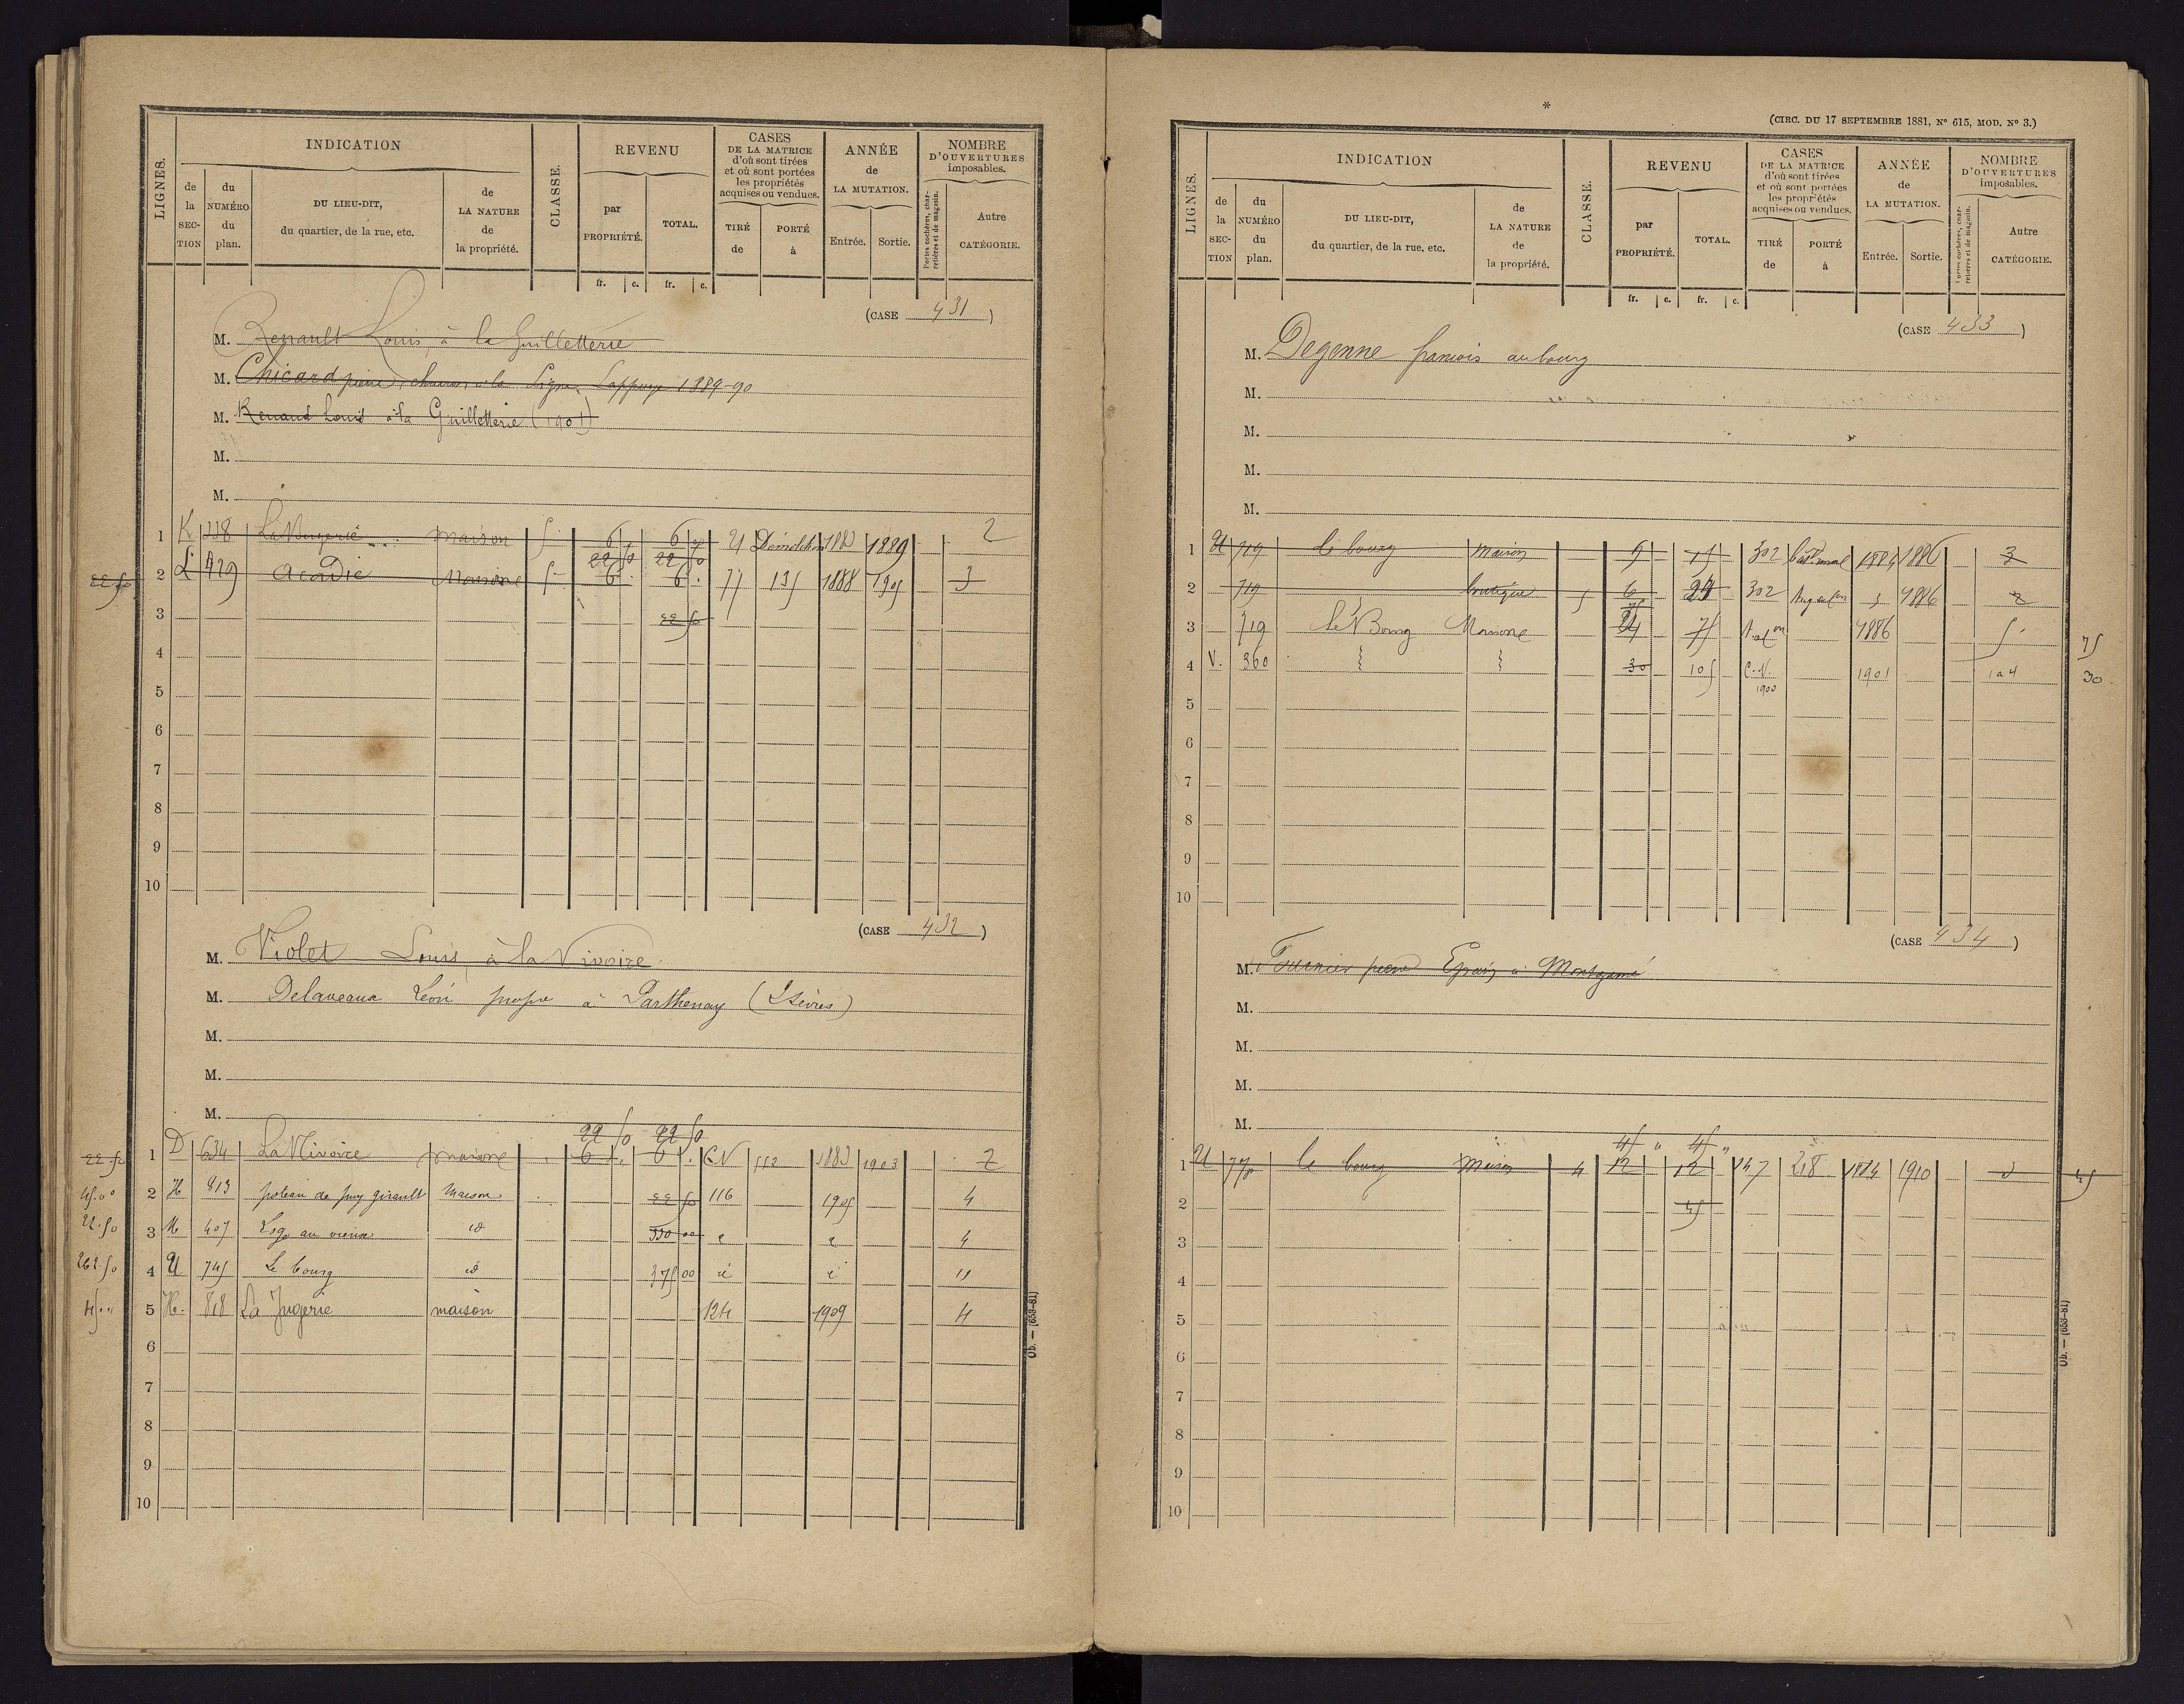 LIGNES.
INDICATION
de la SECTION
du NUMÉRO du plan.
DU LIEU-DIT, du quartier, de la rue, etc.
de LA NATURE de la propriété.
CLASSE.
REVENU
par PROPRIÉTÉ.
TOTAL.
fr. c. fr. c.
CASES DE LA MATRICE d'où sont tirées et où sont portées les propriétés acquises ou vendues.
TIRÉ de
PORTÉ à
ANNÉE de LA MUTATION.
Entrée. Sortie.
NOMBRE D'OUVERTURES imposables.
Portes cochères, charretières et de magasin.
Autre CATÉGORIE.
(CASE 431)
M. Renault Louis, à la Guilletterie
M. Chicard pierre, à la Ligne, Lappuye 1889-90
M. Renaud Louis à la Guilletterie (1901)
M.
M.
1 K 338 maison 6 6 21 Démolition 1883 1889 2
22 50 22 50
22 50 2 L 429 Acadie Maison 5 6 6 77 135 1888 1905 3
3 22 50
4
5
6
7
8
9
10
(CASE 432)
M. Violet Louis à la Vivoire
M. Delaveaux Léon propre à Parthenay (2 Sèvres)
M.
M.
M.
22 50 22 50
22.50 1 D 634 La Vivoire maison 6 6 C.N 113 1883 1903 2
45.00 2 H 813 poteau de puy girault Maison 22 50 116 1905 4
22.50 3 M 407 Loge au vieux id 330 00 4
262.50 4 U 745 Le bourg id 375 00 11
45.00 5 H. 818 La Jugerie maison 124 1909 4
6
7
8
9
10
Ob. — (653-81)
*
(CIRC. DU 17 SEPTEMBRE 1881, Nº 615, MOD. Nº 3.)
LIGNES.
INDICATION
de la SECTION
du NUMÉRO du plan.
DU LIEU-DIT, du quartier, de la rue, etc.
de LA NATURE de la propriété.
CLASSE.
REVENU
par PROPRIÉTÉ.
TOTAL.
fr. c. fr. c.
CASES DE LA MATRICE d'où sont tirées et où sont portées les propriétés acquises ou vendues.
TIRÉ de
PORTÉ à
ANNÉE de LA MUTATION.
Entrée. Sortie.
NOMBRE D'OUVERTURES imposables.
Portes cochères, charretières et de magasin.
Autre CATÉGORIE.
(CASE 433)
M. Degenne francois au bourg
M.
M.
M.
M.
1 U 719 le bourg maison 9 15 302 1884 1886 3
2 719 boutique 5 6 302 1886 2
3 719 Le Bourg Maison 24 75 1886 5 75
4 V. 360 30 105 C.N. 1900 1901 1 a 4 30
5
6
7
8
9
10
(CASE 434)
M. Fournier pierre à Montgamé
M.
M.
M.
M.
45 " 45 "
1 U 770 le bourg maison 4 12 12 147 218 1884 1910 45
2 45
3
4
5
6
7
8
9
10
Ob. — (653-81)